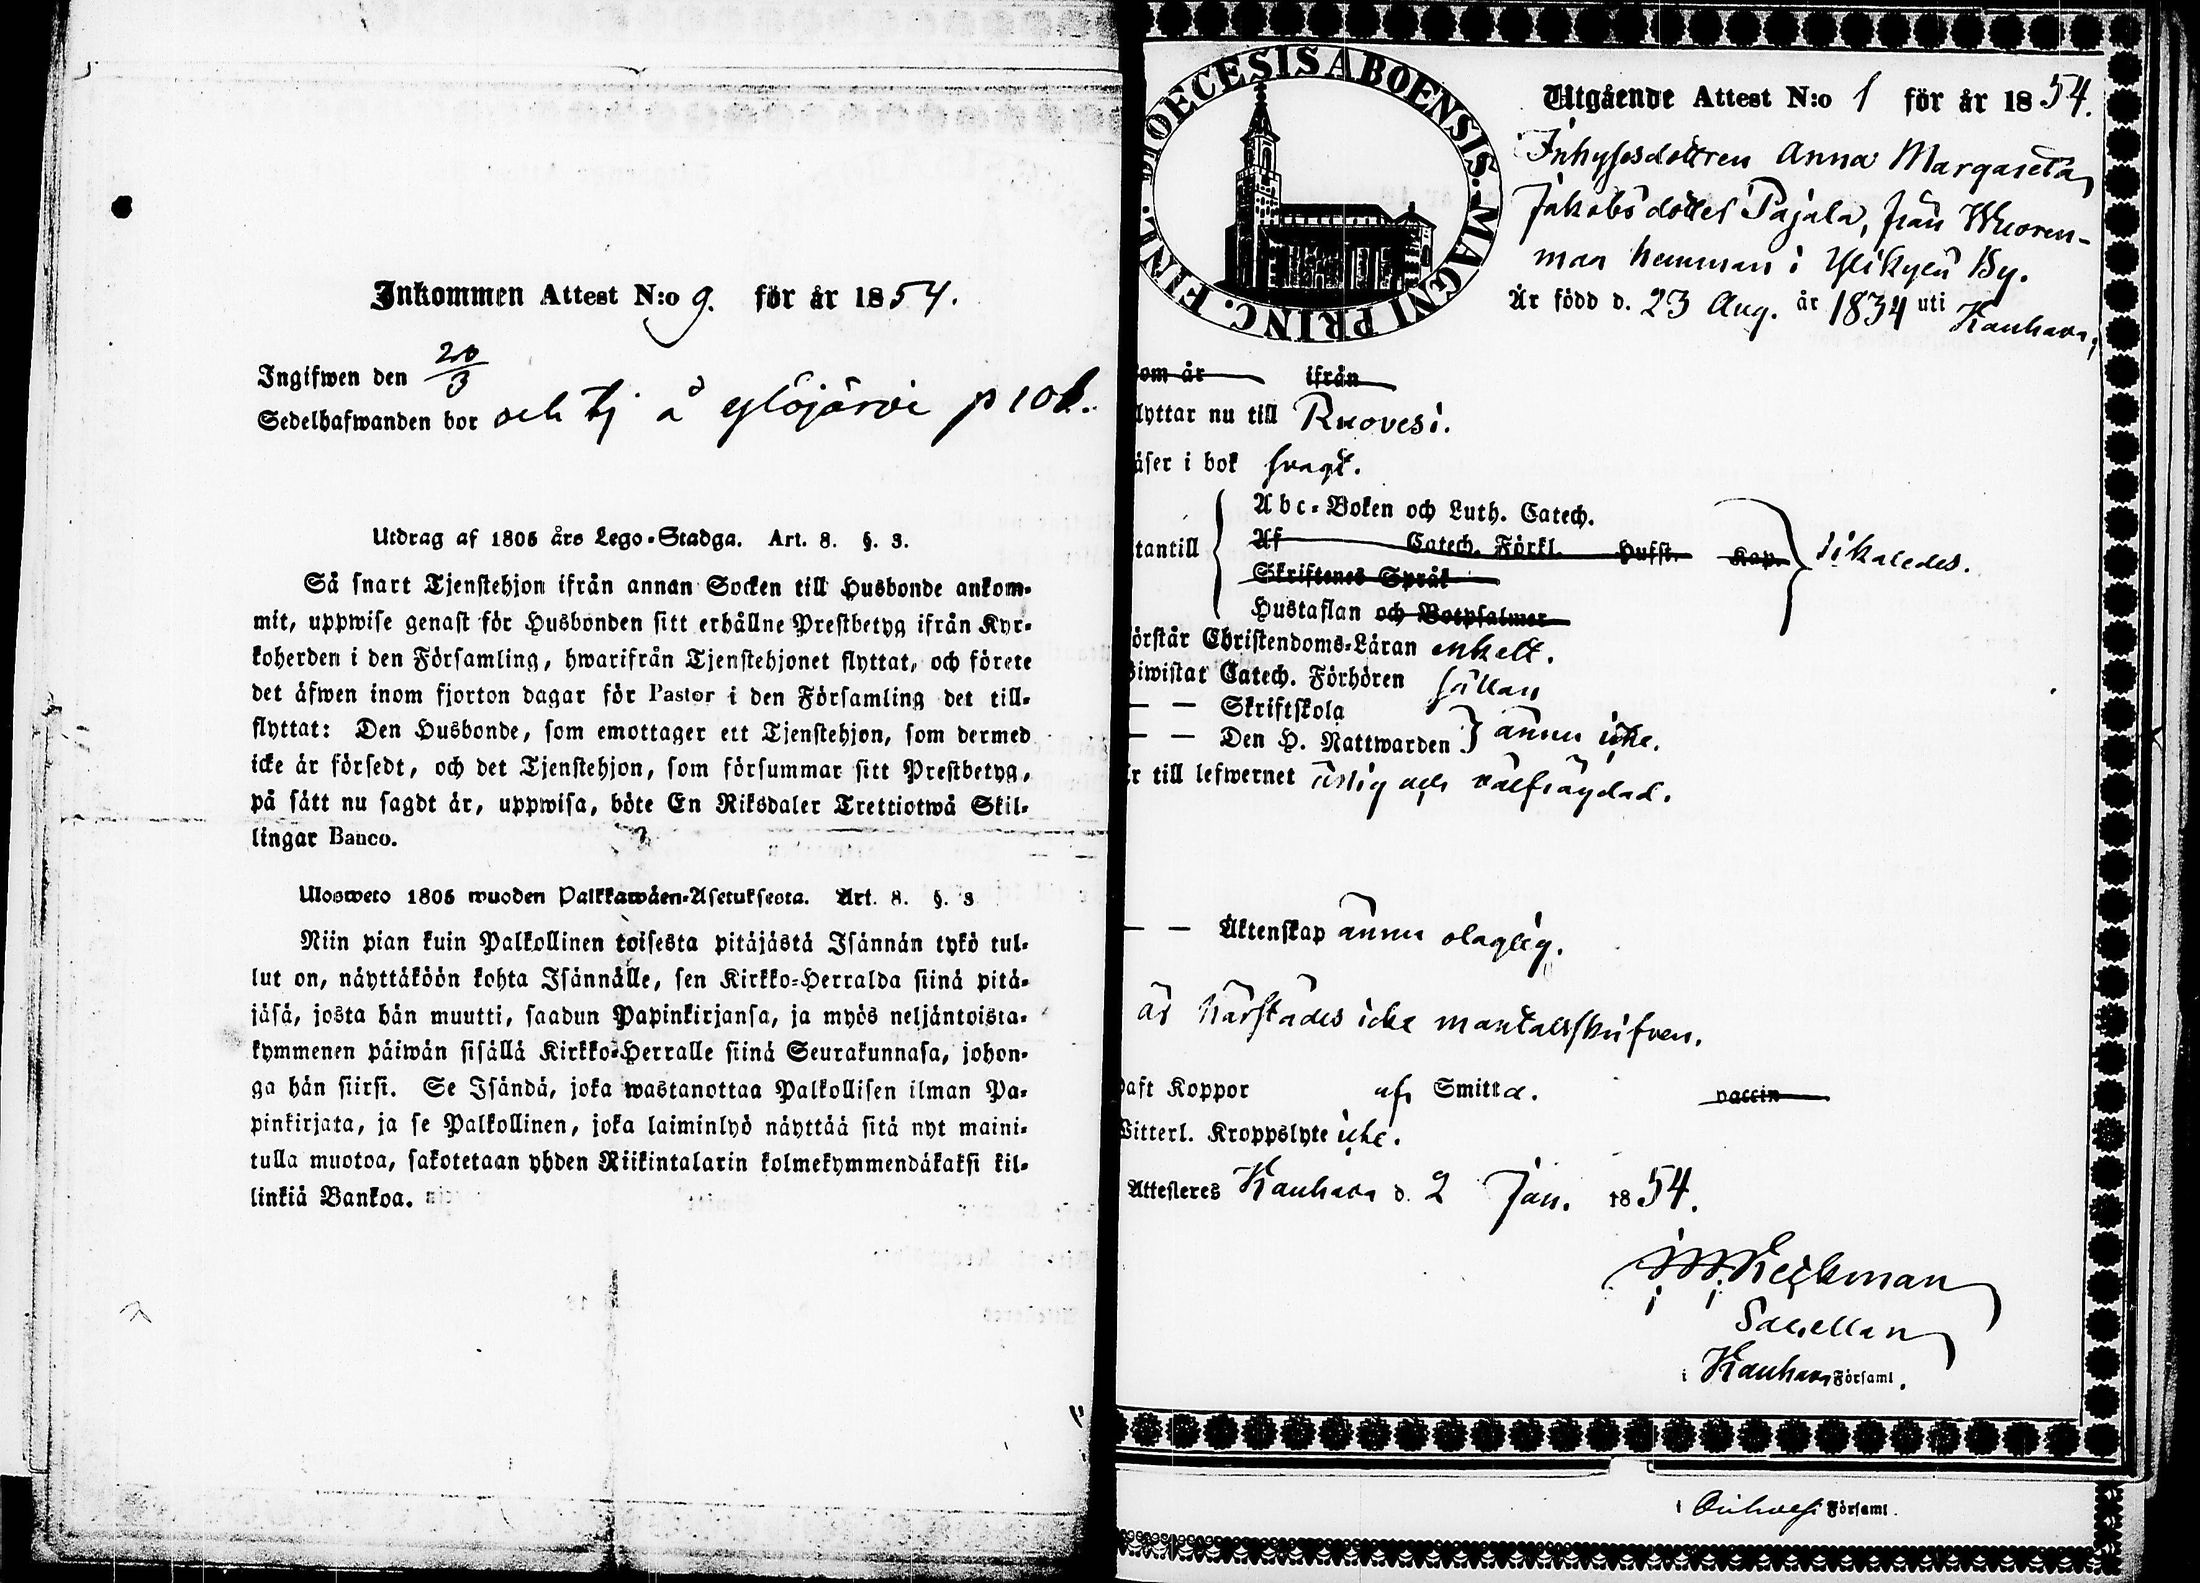 Inkommen Attest N:o 9. för år 1854.
Ingifwen den 20/3
Sedelhafwanden bor och tj å Ylöjärvi p 108.
Utdrag af 1805 års Lego-Stadga. Art. 8. §. 3.
Så snart Tjenstehjon ifrån annan Socken till Husbonde ankom-
mit, uppwise genast för Husbonden sitt erhållne Prestbetyg ifrån Kyr-
koherden i den Församling, hwarifrån Tjenstehjonet flyttat, och förete
det äfwen inom fjorton dagar för Pastor i den Församling det till-
flyttat: Den Husbonde, som emottager ett Tjenstehjon, som dermed
icke är försedt, och det Tjenstehjon, som försummar sitt Prestbetyg,
på sätt nu sagdt är, uppwisa, böte En Riksdaler Trettiotwå Skil-
lingar Banco.
Ulosweto 1805 wuoden Palkkawäen-Asetuksesta. Art. 8. §. 3
Niin pian kuin Palkollinen toisesta pitäjästä Isännän tykö tul-
lut on, näyttäköön kohta Isännälle, sen Kirkko-Herralda siinä pitä-
jäsä, josta hän muutti, saadun Papinkirjansa, ja myös neljäntoista-
kymmenen päiwän sisällä Kirkko-Herralle siinä Seurakunnasa, johon-
ga hän siirsi. Se Isändä, joka wastanottaa Palkollisen ilman Pa-
pinkirjata, ja se Palkollinen, joka laiminlyö näyttää sitä nyt maini-
tulla muotoa, sakotetaan yhden Riikintalarin kolmekymmendäkaksi kil-
linkiä Bankoa.
DIOECESIS ABOENSIS. MAGNI PRINC. FINL.
Utgående Attest N:o 1 för år 1854.
Inhysesdottren Anna Margareta
Jakobsdotter Pajala, från Wuoren-
maa hemman i Ylikylä By.
Är född d. 23 Aug. år 1834 uti Kauhava,
om år ifrån
lyttar nu till Ruovesi.
äser i bok svagt.
Abc-Boken och Luth. Catech.
tantill Af Catech. Förkl. Husst. Kap. likaledes.
Skriftenes Språk
Hustaflan och Botpsalmer
örstår Christendoms-Läran enkelt.
iwistat Catech. Förhören sällan
— — Skriftskola
— — Den H. Nattwarden ännu icke.
r till lefwernet ärlig och välfrägdad.
— — Äktenskap ännu olaglig.
är härstädes icke mantalsskrifven.
aft Koppor af Smitta. vaccin
itterl. Kroppslyte icke.
Attesteres Kauhava d. 2 Jan. 1854.
Sacellan
i Kauhava Församl.
i Församl.